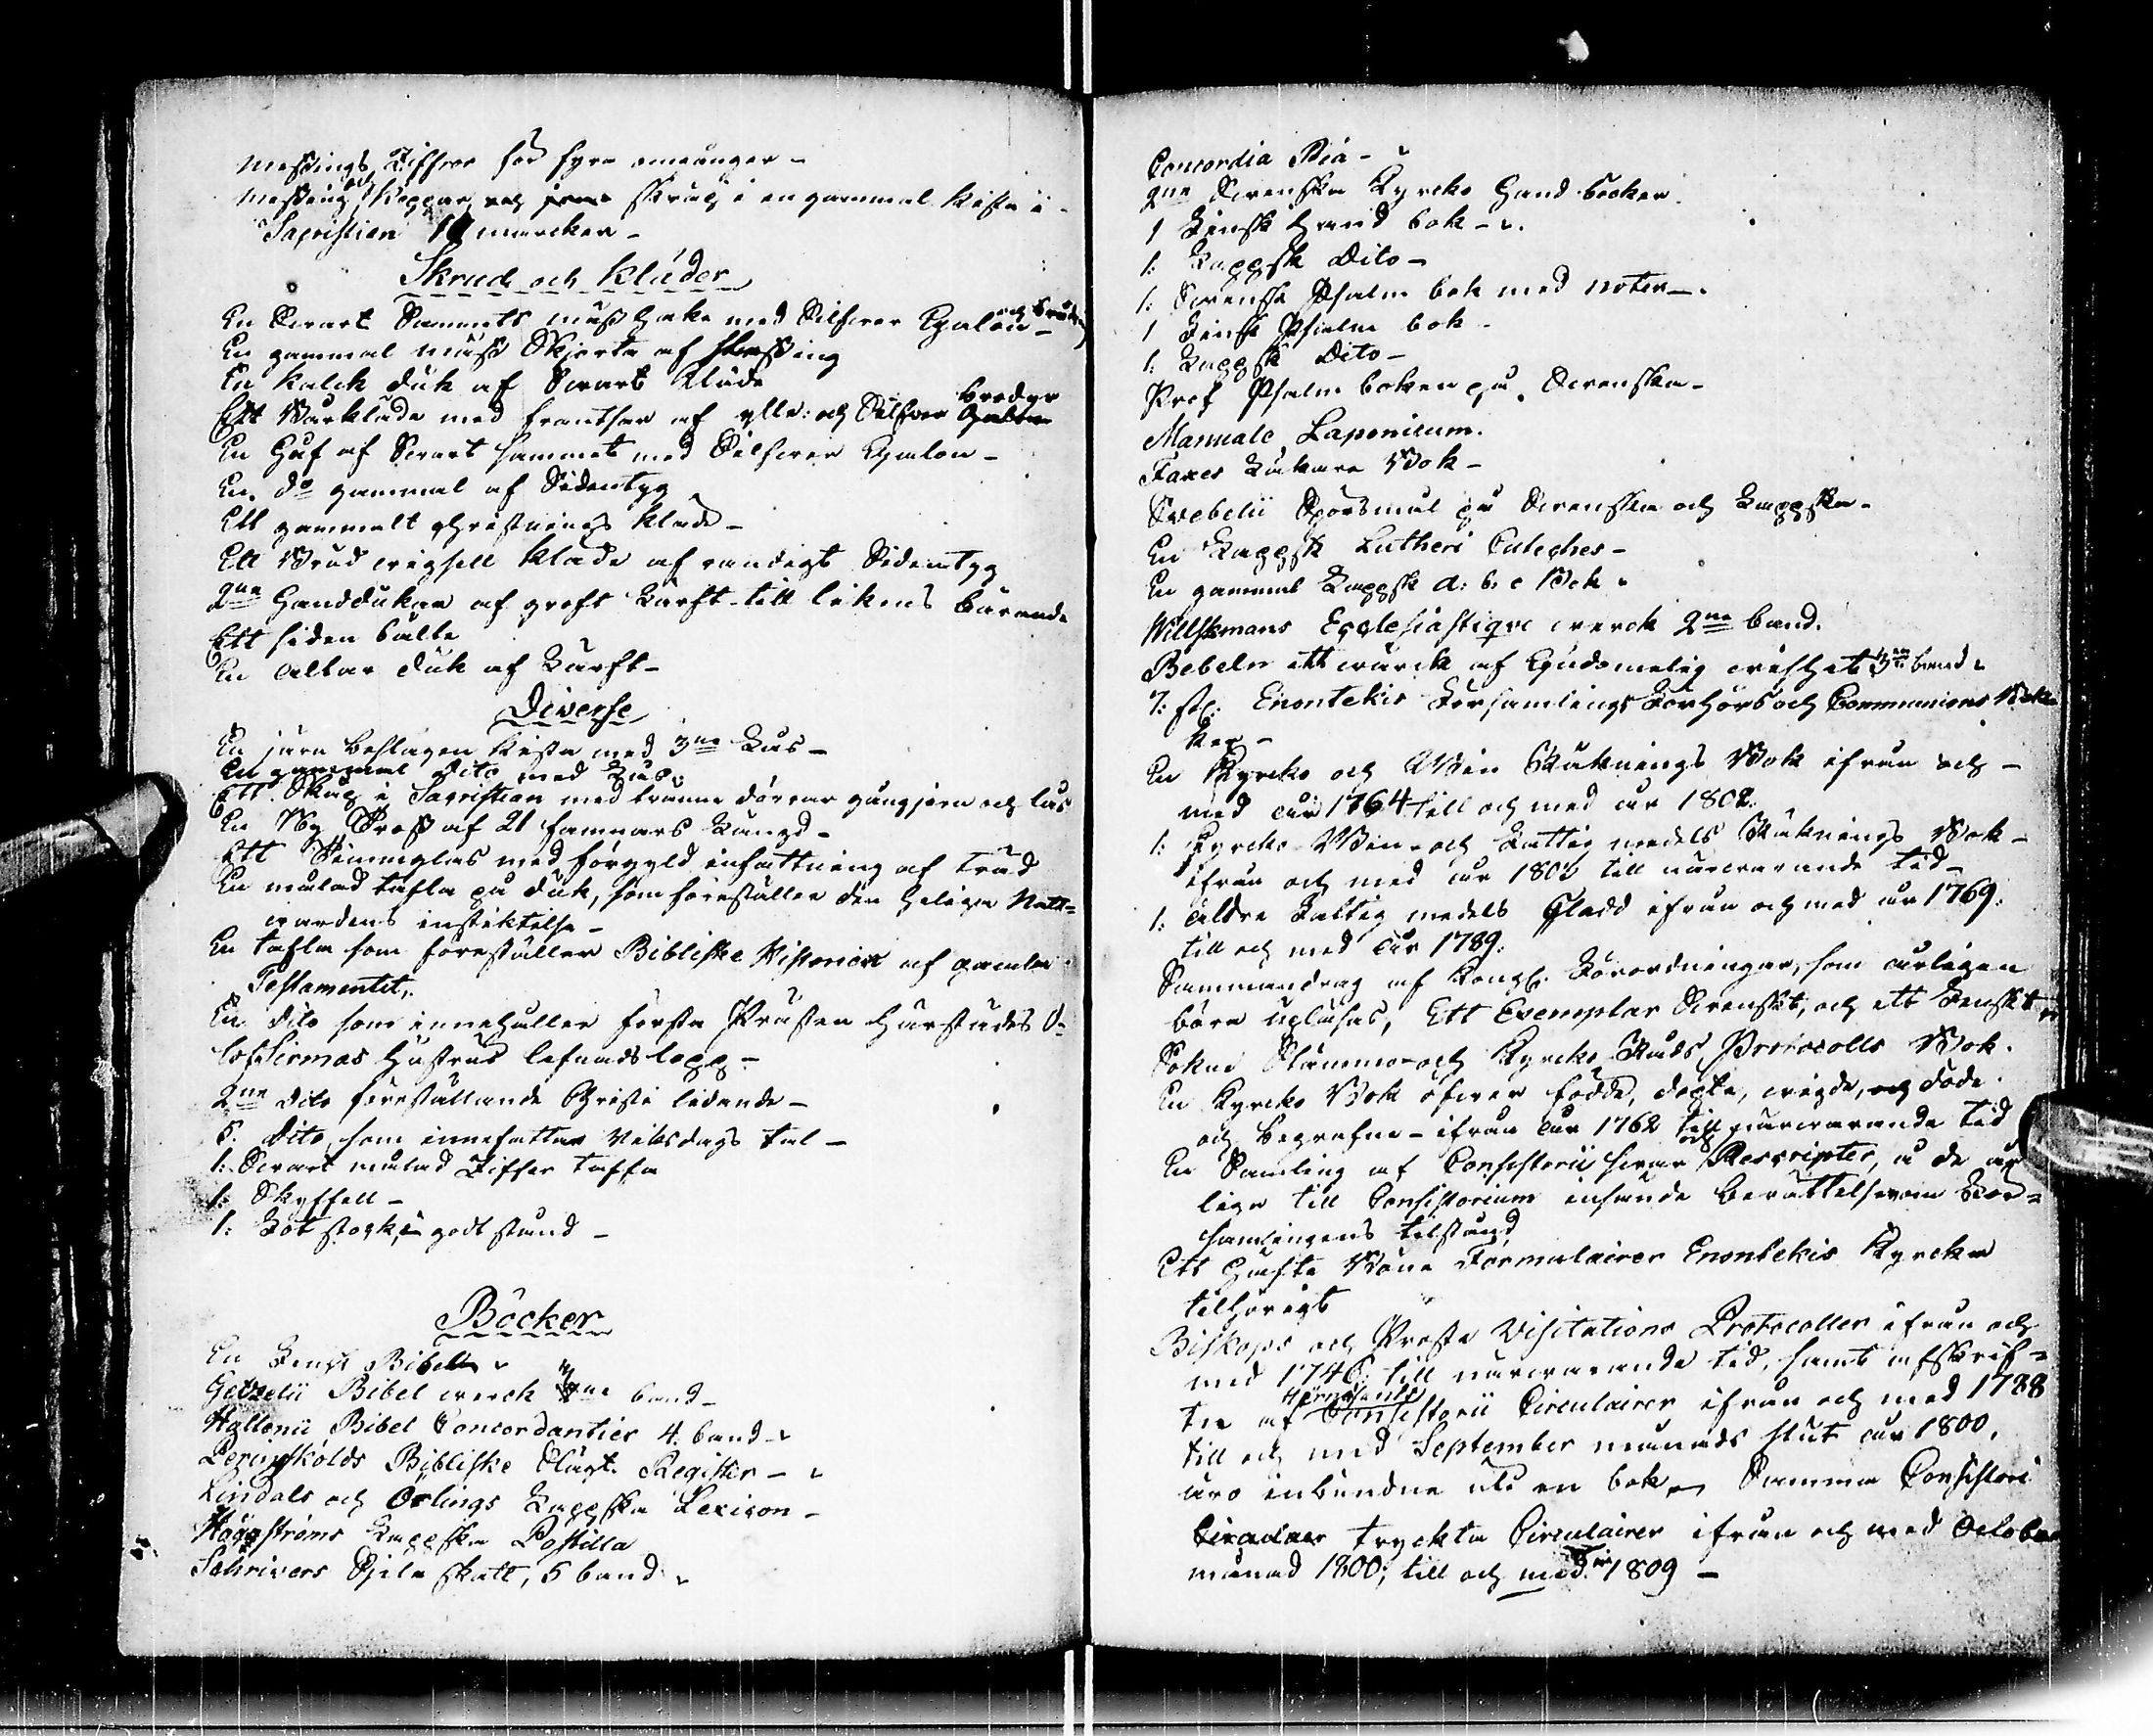 Messings Ziffror för fyra omgångar -
Messing skoppar och skrap i en gammal kista i
Sacristian 11 marcker -
Skrud och kläder
En Swart Sammets mässhake med Silfwer Galon -
En gammal mäss Skjorta af
En kalck duk af Swart kläde
Ett Warkläde med frantsar af ylle: och Silfwer broderi
En Håf af Swart sammet med Silfwer Galon -
En do gammal af Sidentyg
Ett gammalt christnings kläde -
Ett Brud wigsell kläde af randigt Sidentyg
2ne Handdukar af groft Lärft till likens bärande
Ett siden bälte
En altar duk af Lärft -
Diverse
En järn beslagen kista med 3ne Lås -
En gammal dito med Lås.
Ett Skåp i Sacristian med trenne dörrar gångjern och lås
En Ny Tross af 21 famnars Längd -
Ett Timmglas med förgyld infattning af träd
En målad tafla på duk, som föreställer den heliga Natt=
wardens instiktelse -
En tafla som föreställer Bibliske Historien af gamla
Testamentet,.
En dito som innehåller första Prästen härstädes O=
lof Sirmas hustrus lefnadslopp. -
2ne dito föreställande Christi lidande -
5. dito, som innefattar Wilsdags tal -
1: Swart målad Ziffer taffla
1: Skyffell -
1: Fot stock, i godt stånd -
Böcker
En Finsk Bibel
Getzelii Bibel werck band -
Hallenii Bibel Concordantier 4. band -
Peringskölds Bibliske Slägt. Register -
Lindals och Örlings Lappska Lexicon -
Höggströms Lappska Postilla
Schrivers Själa skatt, 5 band
Concordia Pia -
2ne Swenska Kyrcko Hand böcker.
1 Finsk Hand bok -
1: Lappsk Dito -
1: Swenska Psalm bok med noter -
1 Finsk Psalm bok -
1: Lappsk Dito -
Prof Psalm boken på Swenska -
Manuale Laponicum.
Faxes Läkare Bok -
Svebelii Spörsmål på Swenska och Lappska -
En Lappsk Lutheri Cateches -
En gammal Lappsk a: b: c Bok
Willskmans Ecclesiastique werck 2ne band.
Bebeln ett wärck af Gudomelig wishet 3ne band.
7: st: Enontekis Församlings Förhörs och Communions Böc=
ker -
En Kyrcko och Win Räknings Bok ifrån och -
med år 1764 till och med år 1802.
1: Kyrcko Win- och Fattig medels Räknings Bok -
ifrån och med år 1802 till närwarande tid -
1: äldre Fattig medels Kladd ifrån och med år 1769:
till och med år 1789:
Sammandrag af Kongl. Förordningar, som årligen
böra upläsas, Ett Exemplar Swenskt, och ett Finskt
Sokne Stämmo- och Kyrcko Råds Protocolls Bok.
En Kyrcko Bok öfwer födde, döpte, wigde, och döde
och begrafne - ifrån år 1762 till närwarande tid
En Samling af Consistorii swar Rescripter, å de år
lige till Consistorium insände berättelser om För=
samlingens tilstånd,
Ett Häfte Böne Formulairer Enontekis Kyrcka
tilhörigt
Biskops och Proste Visitations Protocoller ifrån och
med 1746: till närwarande tid, samt afskrif=
ter af Hernösands Consistorii Circulairer ifrån och med 1788
till och med September månads slut år 1800,
äro inbundne uti en bok Samma Consistorii
tryckta Circulairer ifrån och med October
månad 1800; till och med 1809 -